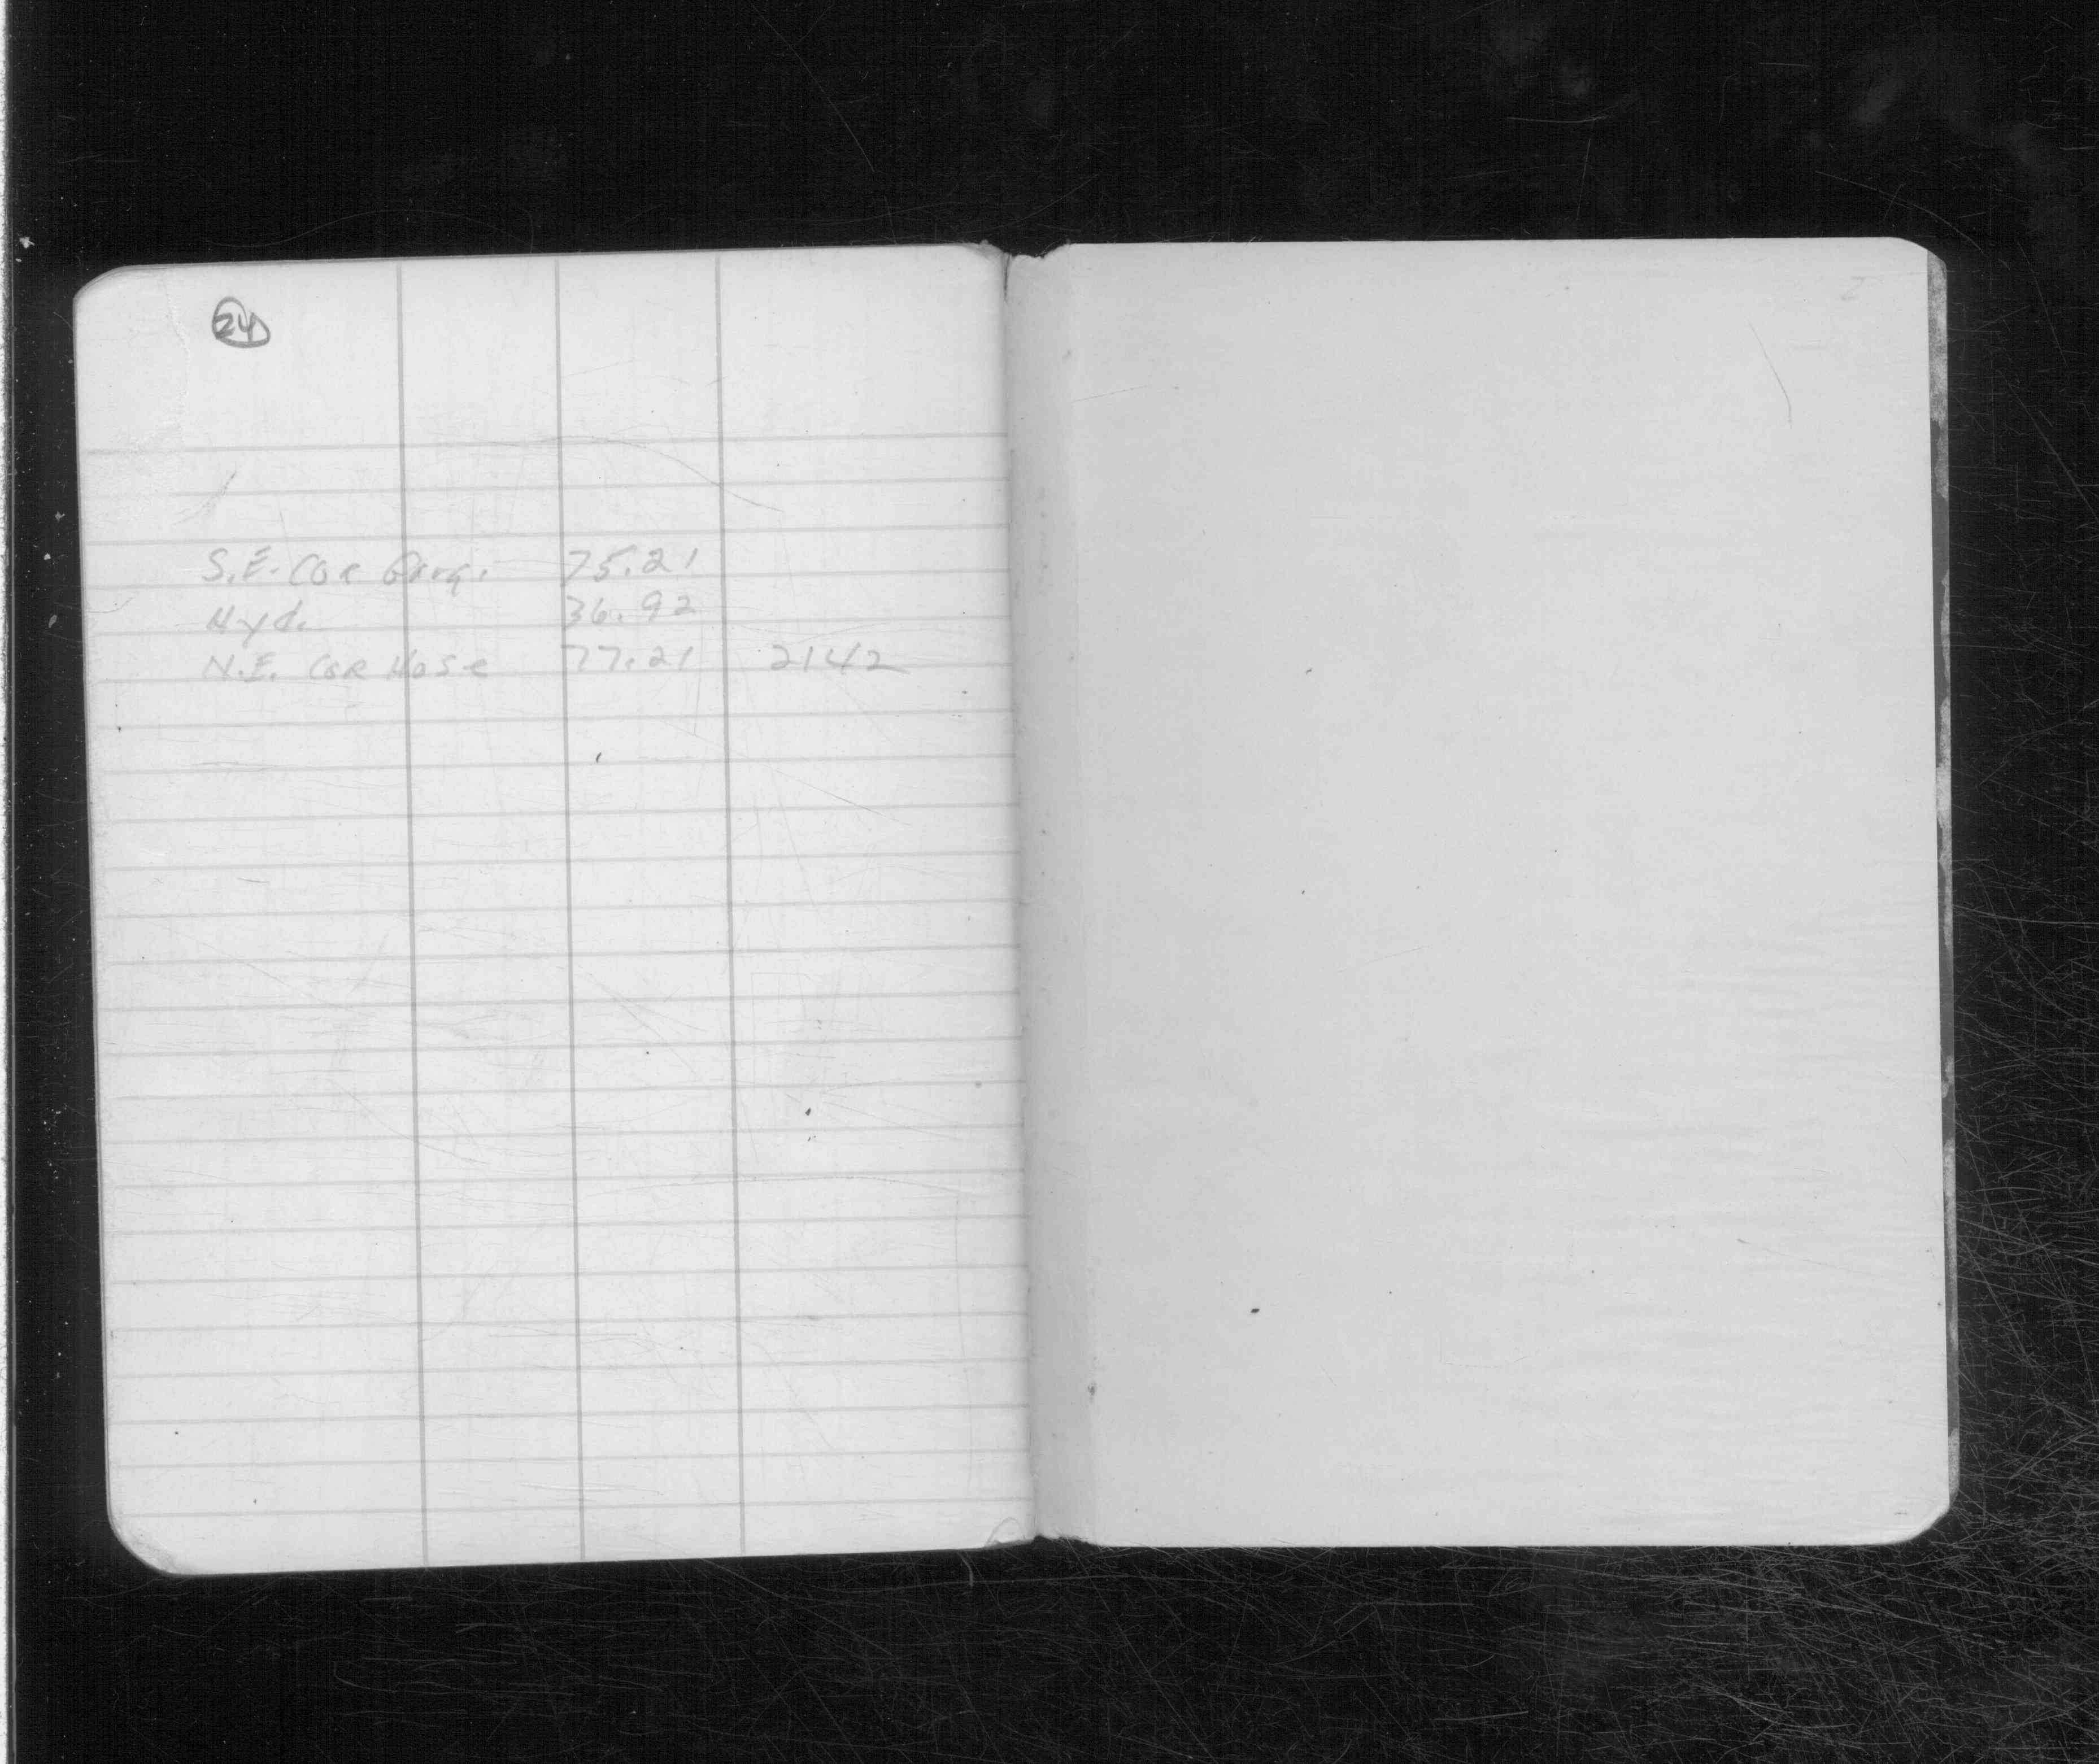 24
S.E. Cor Garg. 75.21
Hyd. 36.92
N.E. Cor Hose 77.21 2142